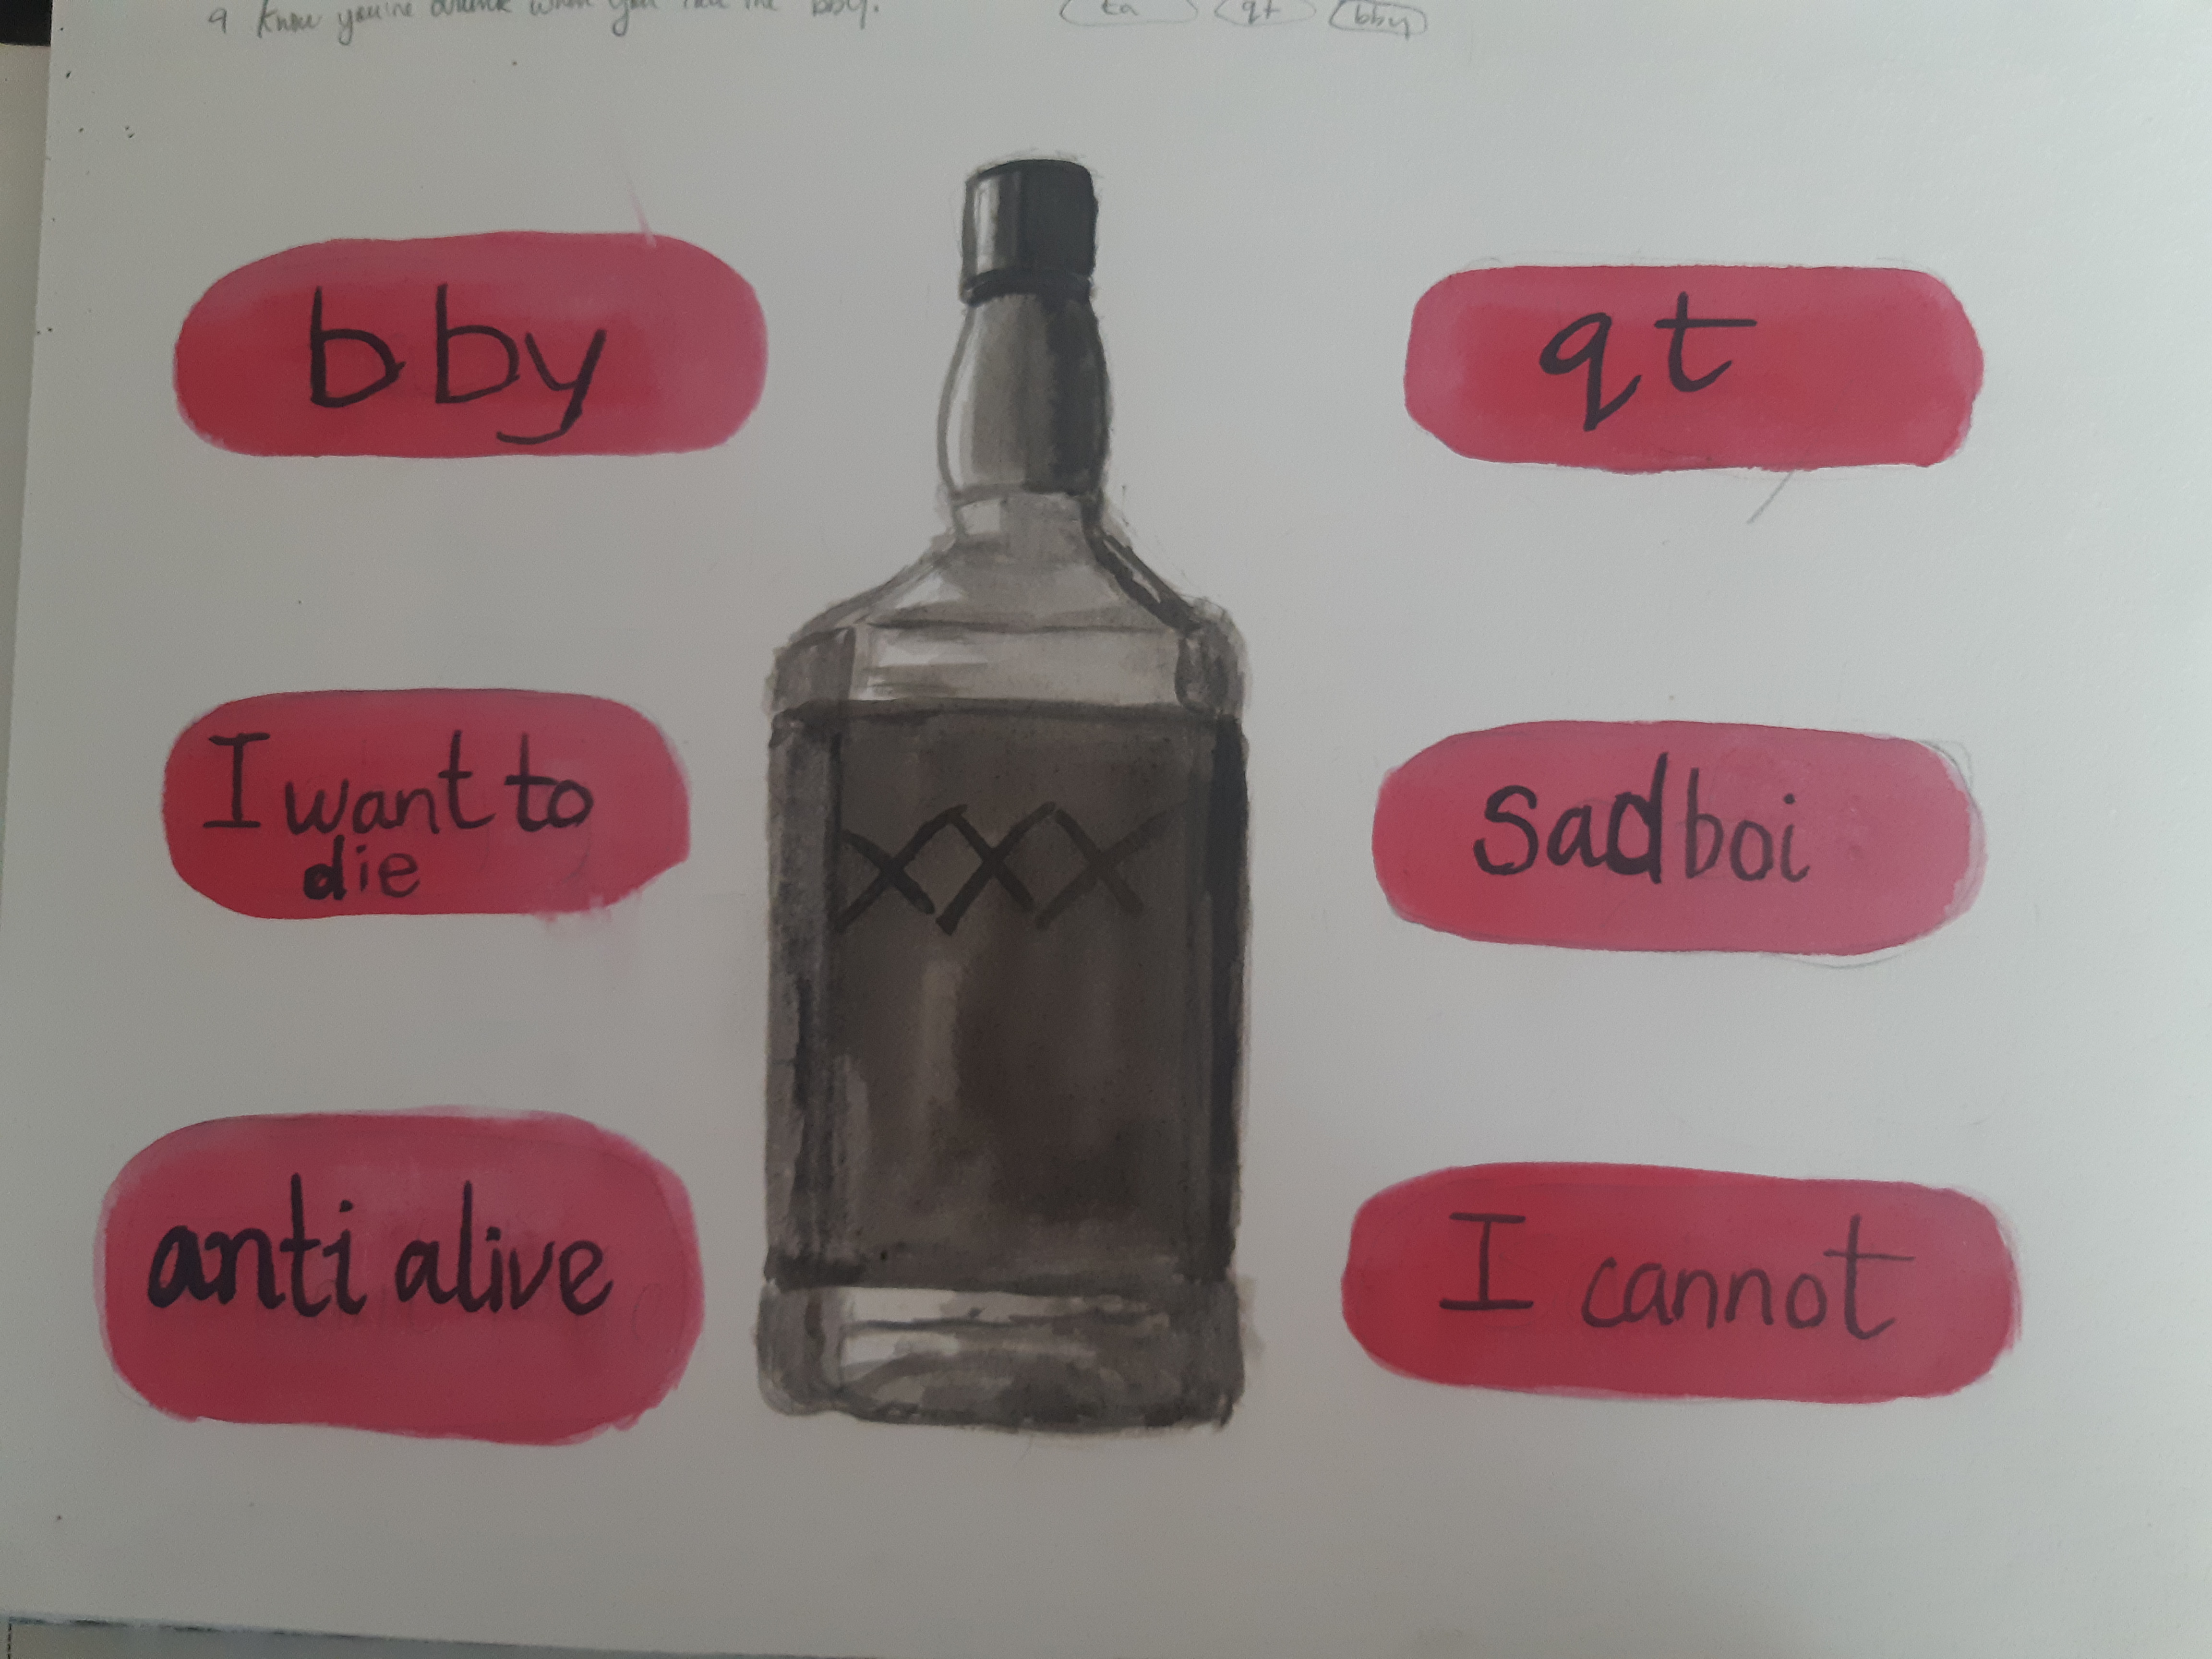 I know you're drunk when you call me bby.
ta qt bby
bby
qt
I want to
die
sadboi
XXX
anti alive
I cannot